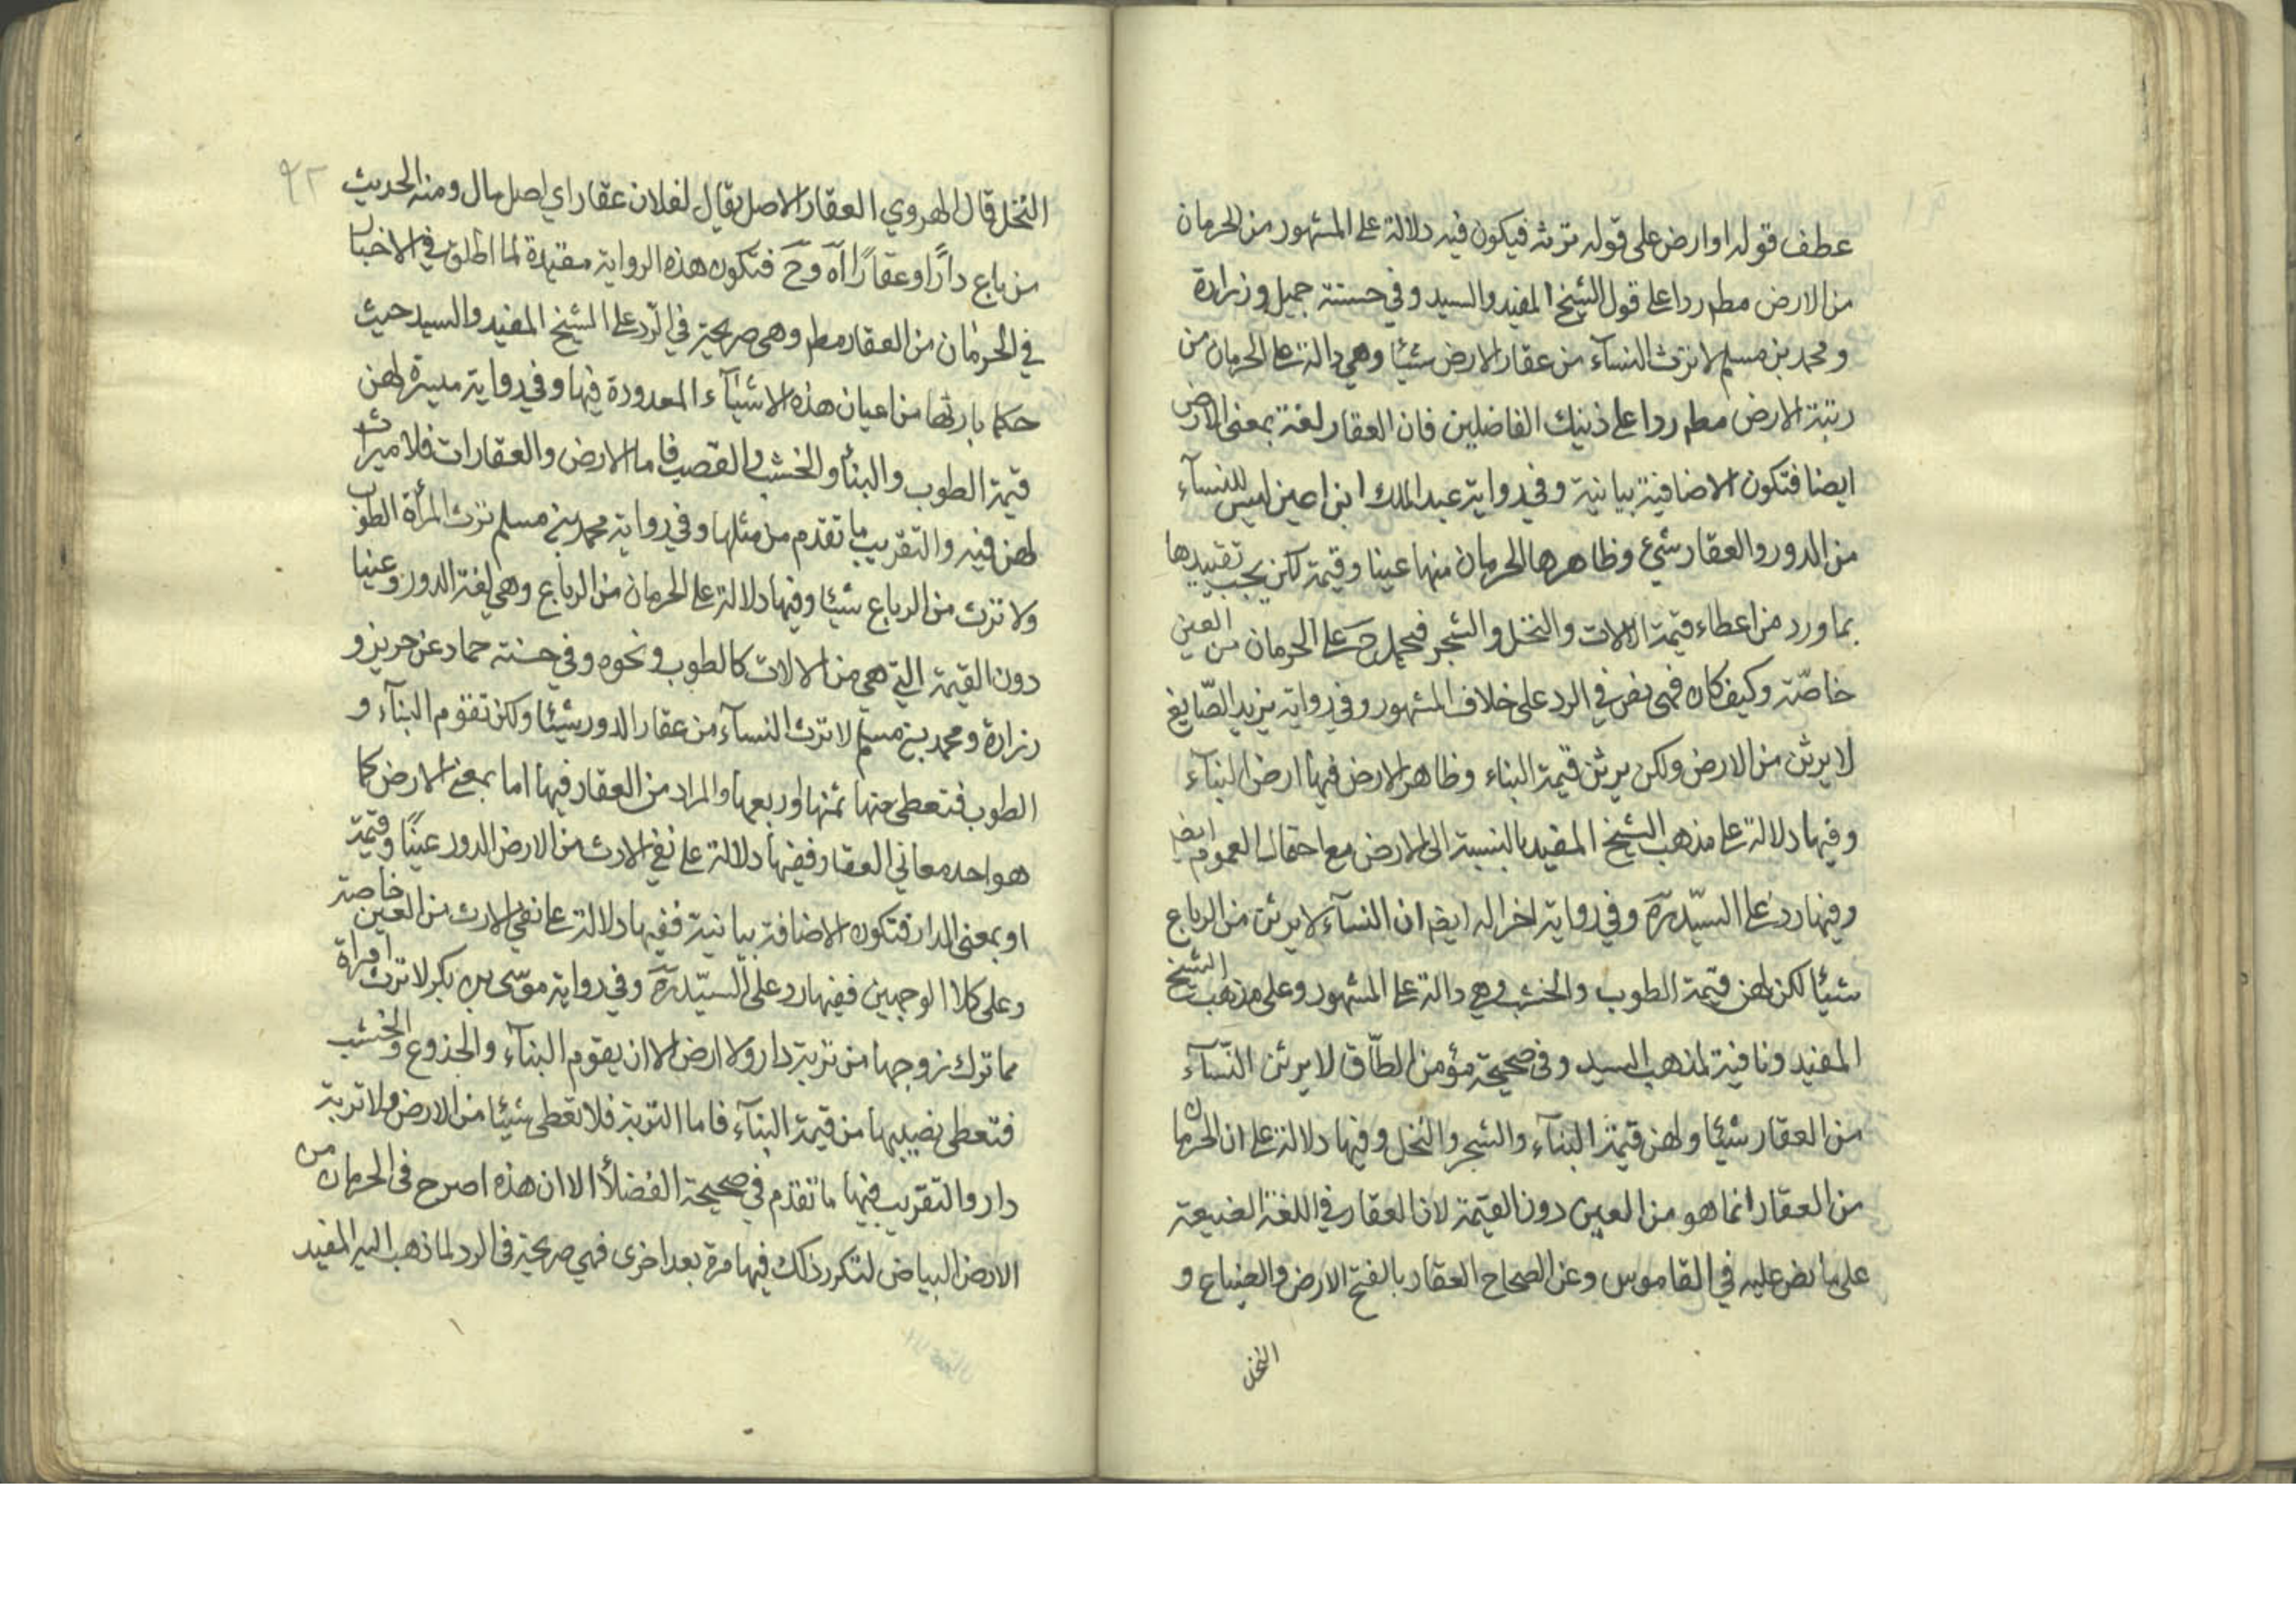 عطف قوله او ارض على قوله تربة فيكون فيه دلالة على المشهور من الحرمان
من الارض مطم ردا على قول الشيخ المفيد والسيد وفي حسنة جميل وزرارة
ومحمد بن مسلم لا ترث النسآء من عقار الارض شيئا وهي دالة على الحرمان من
رقبة الارض مطم ردا على ذينك الفاضلين فان العقار لغة بمعنى الارض
ايضا فتكون الاضافية بيانية وفي رواية عبد الملك ابن اعين ليس للنسآء
من الدور والعقار شيء وظاهرها الحرمان منها عينا وقيمة لكن يجب تقييدها
بما ورد من اعطاء قيمة الالات والنخل والشجر فيحمل ح على الحرمان من العين
خاصّة وكيف كان فهى نص في الرد على خلاف المشهور وفي رواية يزيد الصّايغ
لا يرثن من الارض ولكن يرثن قيمة البناء وظاهر الارض فيها ارض البنآء
وفيها دلالة على مذهب الشيخ المفيد بالنسبة الى الارض مع احتمال العموم ايض
وفيها رد على السيّد ره وفي رواية اخرا له ايض ان النسآء لا يرثن من الرباع
شيئا لكن لهن قيمة الطوب والخشب وهي دالة على المشهور وعلى مذهب الشيخ
المفيد ونافية لمذهب السيد وفى صحيحة مؤمن الطّاق لا يرثن النّسآء
من العقار شيئا ولهن قيمة البنآء والشجر والنخل وفيها دلالة على ان الحرمان
من العقار انما هو من العين دون القيمة لان العقار في اللغة الضيعة
على ما نص عليه في القاموس وعن الصحاح العقار بالفتح الارض والضياع و
النخل
٩٢
النخل قال الهروي العقار الاصل يقال لفلان عقار اي اصل مال ومنه الحديث
من باع دارًا وعقارًا اه وح فتكون هذه الرواية مقيدة لما اطلق في الاخبار
في الحرمان من العقار مطم وهى صريحة في الرّد على الشيخ المفيد والسيد حيث
حكما بارثها من اعيان هذه الاشيآء المعدودة فيها وفي رواية ميسرة لهن
قيمة الطوب والبنأ والخشب والقصب فاما الارض والعقارات فلا ميراث
لهن فيه والتقريب ما تقدم من مثلها وفي رواية محمد بن مسلم ترث المرأة الطوب
ولا ترث من الرباع شيئا وفيها دلالة على الحرمان من الرباع وهي لغة الدور وعينا
دون القيمة التي هي من الالات كالطوب ونحوه وفي حسنة حماد عن حريز و
زرارة ومحمد بن مسلم لا ترث النسآء من عقار الدور شيئا ولكن تقوم البنآء و
الطوب فتعطى منها ثمنها او ربعها والمراد من العقار فيها اما بمعنى الارض كما
هو احد معاني العقار ففيها دلالة على نفي الارث من الارض الدور عينًا وقيمة
او بمعنى الدار فتكون الاضافة بيانية ففيها دلالة على نفي الارث من العين خاصة
وعلى كلا الوجهين ففيها رد على السيّد ره وفي رواية موسى بن بكر لا ترث امرأة
مما ترك زوجها من تربة دار ولا ارض الا ان يقوم البنآء والجذوع والخشب
فتعطى نصيبها من قيمة البنآء فاما التربة فلا تعطى شيئا من الارض ولا تربة
دار والتقريب فيها ما تقدم في صحيحة الفضلأ الا ان هذه اصرح فى الحرمان من
الارض البياض لتكرر ذلك فيها مرة بعد اخرى فهي صريحة فى الرد لما ذهب اليه المفيد